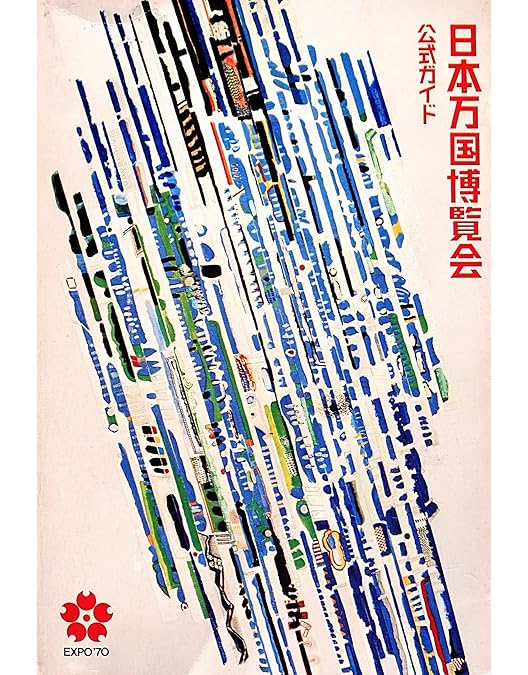 日本万国博覧会
公式ガイド
EXPO'70